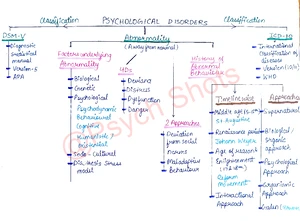 Classification
PSYCHOLOGICAL DISORDERS
Classification
DSM-V
Diagnostic
statistical
manual
Version-5
APA
Abnormality
(Away from normal)
Factors underlying
Abnormality
Biological
Genetic
Psychological
Psychodynamic
Behavioural
Cognitive
Humanistic & Existential
Socio-Cultural
Diathesis Stress
model
4Ds
Deviance
Distress
Dysfunction
Danger
2 Approaches
Deviation
from social
norms
Maladaptive
Behaviour
History of
Abnormal
Behaviour
Timelinewise
Middle age
St Augustine
Renaissance period
Johann Weyer
Age of reason &
Enlightenment
Reform
movement
Interactional
Approach
Approaches
Biological/
Organic
approach
Psychological
Approach
Organismic
Approach
Galen
ICD-10
International
Classification
of disease
Version (10)
WHO
Psych Shots